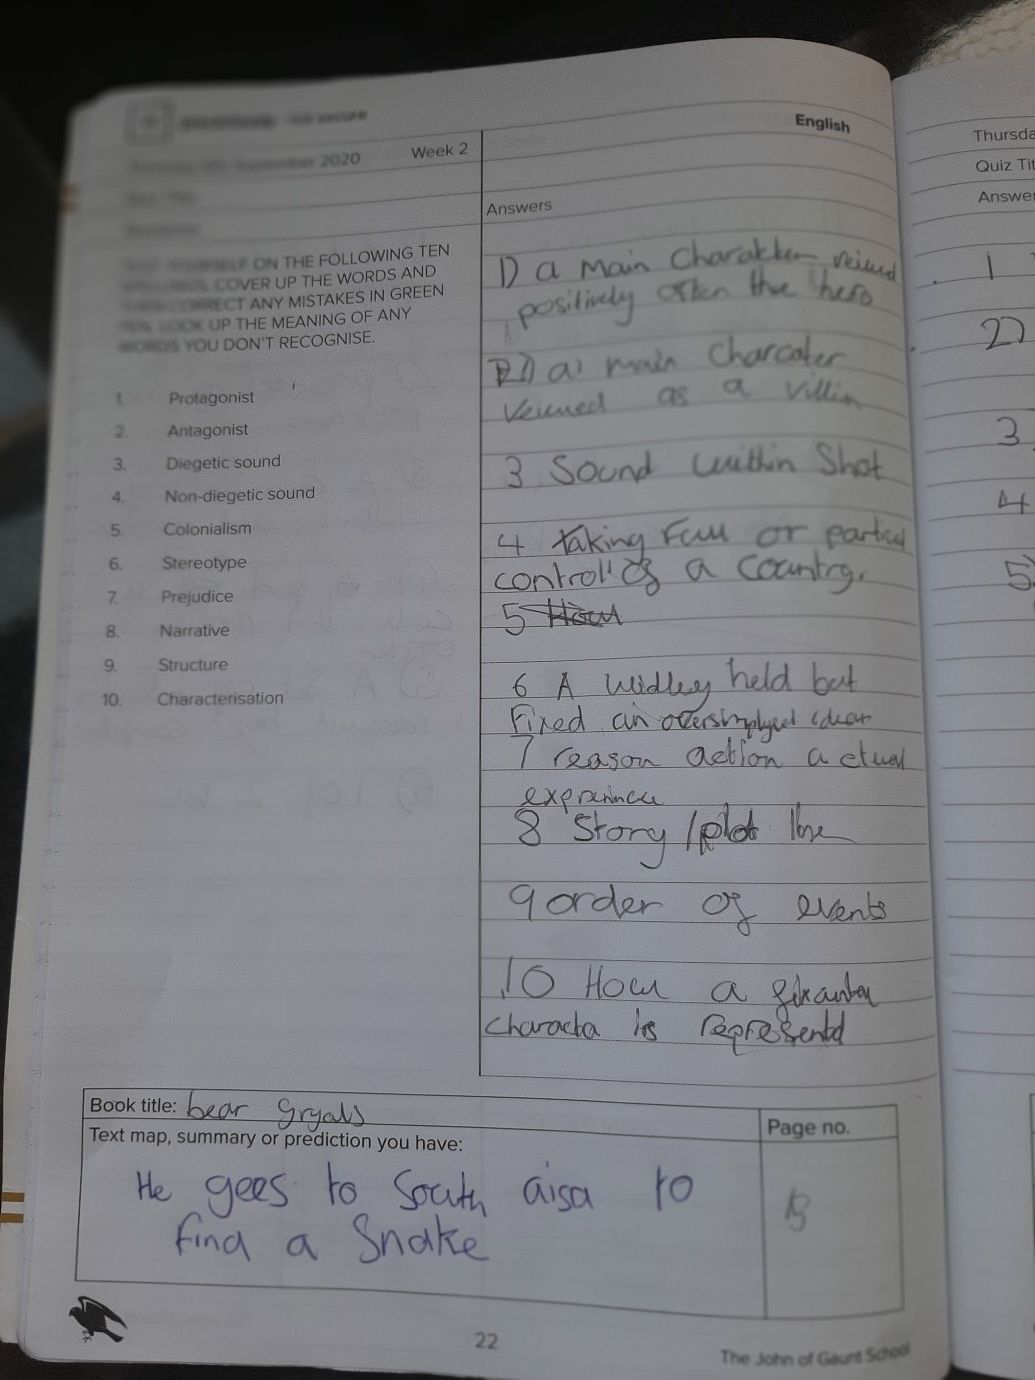 English
September 2020 Week 2
Answers
ON THE FOLLOWING TEN
COVER UP THE WORDS AND
CORRECT ANY MISTAKES IN GREEN
LOOK UP THE MEANING OF ANY
WORDS YOU DON'T RECOGNISE.
1. Protagonist
2. Antagonist
3. Diegetic sound
4. Non-diegetic sound
5. Colonialism
6. Stereotype
7. Prejudice
8. Narrative
9. Structure
10. Characterisation
1) a main
positively often the hero
2) a main Charcater
veiwed as a villin
3 Sound within Shot
4 taking Full or
control of a Country.
5 How
6 A widley held but
Fixed an
7 reason action a ctual
8 Story / plot line
9 order of events
10 How a
is
Book title: bear gryals
Text map, summary or prediction you have:
Page no.
He goes to South aisa to
find a Snake
22
The John of Gaunt School
Thursda
Quiz Tit
Answe
1
2)
3
4
5)